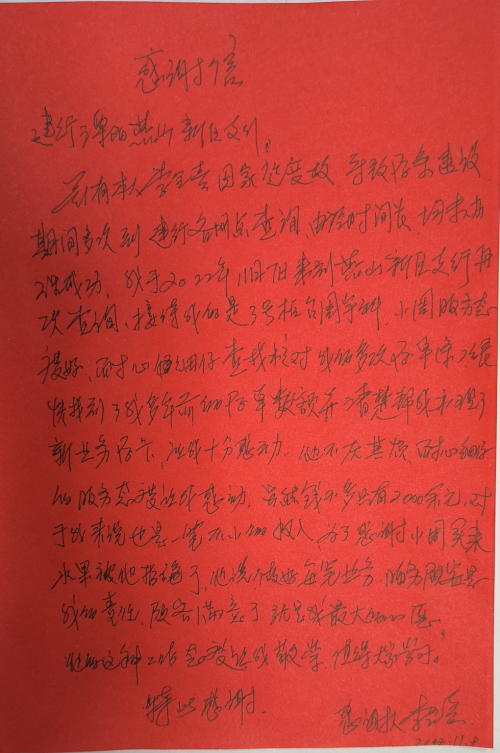 感谢信
建行 燕山新区支行：
兹有本人李 因家庭变故 导致存单遗失
期间多次到建行各网点查询 由于时间长 均未办
理成功，我于2022年11月7日来到燕山新区支行再
次查询、接待我的是3号柜台周 小周服务态
度好，耐心仔细查找核对我的多次存单 很
快找到了我多年前的存单数额并 帮我办理了
新业务存卡，让我十分感动。他不厌其烦，耐心细
的服务态度让我感动，虽然钱不多只有2000余元，对
于我来说也是一笔不小的收入 为了感谢小周买来
水果被他拒绝了，他说 办好每笔业务，服务顾客是
我的责任，顾客满意了就是我最大的 。
他的这种工作态度让我敬
特此感谢
感谢人 李
2022.11.8